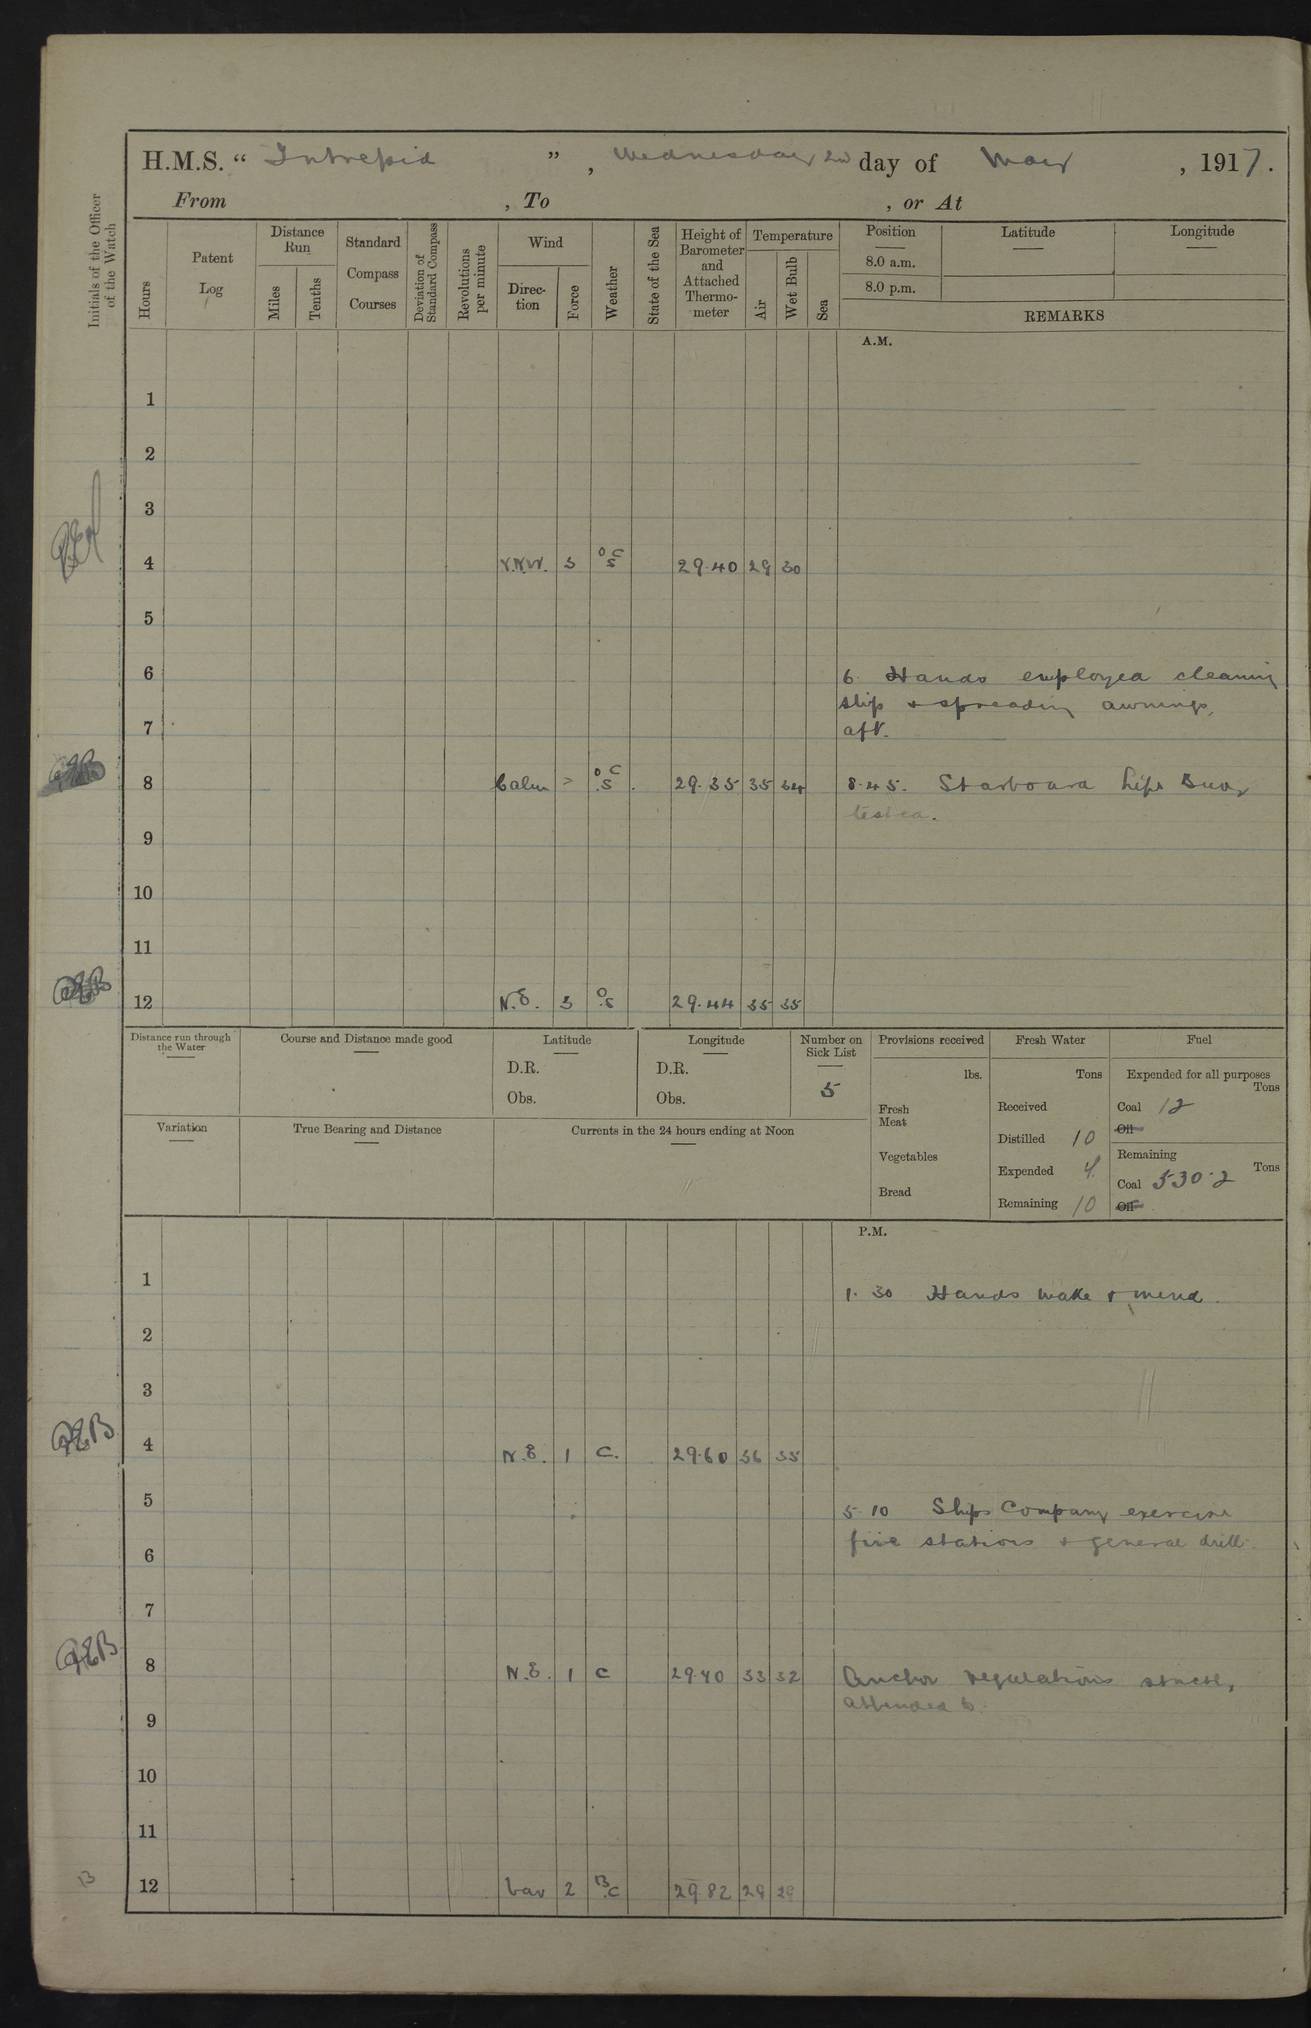 H.M.S. “ Intrepid ” , Wednesday 2nd day of May , 1917.
From , To , or At
Initials of the Officer of the Watch
Hours
Patent Log
Distance Run
Miles
Tenths
Standard Compass Courses
Deviation of Standard Compass
Revolutions per minute
Wind
Direction
Force
Weather
State of the Sea
Height of Barometer and Attached Thermometer
Temperature
Air
Wet Bulb
Sea
Position
8.0 a.m.
8.0 p.m.
Latitude
Longitude
REMARKS
A.M.
1
2
3
4 N.W. 3 o c s 29.40 29 30
5
6 6 Hands employed cleaning
ship & spreading awnings
7 aft.
8 Calm - o c s 29.35 35 34 8.45. Starboard Life Buoy
tested.
9
10
11
12 N.E. 3 o s 29.44 35 35
Distance run through the Water
Course and Distance made good
Latitude
D.R.
Obs.
Longitude
D.R.
Obs.
Number on Sick List
5
Provisions received
lbs.
Fresh Meat
Vegetables
Bread
Fresh Water
Tons
Received
Distilled 10
Expended 4
Remaining 10
Fuel
Expended for all purposes
Tons
Coal 12
Oil
Remaining
Tons
Coal 530.2
Oil
Variation
True Bearing and Distance
Currents in the 24 hours ending at Noon
P.M.
1 1.30 Hands make & mend.
2
3
4 N.E. 1 C. 29.60 36 35
5 5.10 Ships Company exercise
fire stations & general drill.
6
7
8 N.E. 1 C 29.70 33 32 Anchor regulations strictly
attended to.
9
10
11
12 Var 2 B.C 29 82 29 29